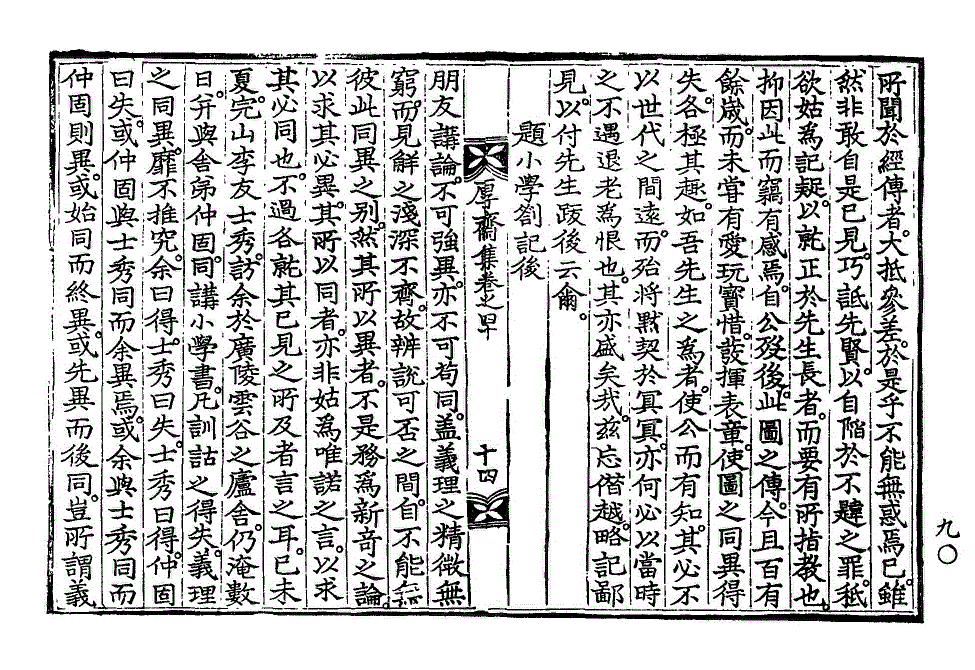 所聞於經傳者。大抵參差。於是乎不能無惑焉已。雖
然非敢自是已見。巧詆先賢。以自陷於不韙之罪。秪
欲姑爲記疑。以就正於先生長者。而要有所指教也。
抑因此而竊有感焉。自公歿後。此圖之傳。今且百有
餘歲。而未甞有愛玩寶惜。發揮表章。使圖之同異得
失。各極其趣。如吾先生之爲者。使公而有知。其必不
以世代之間遠。而殆將默契於冥冥。亦何必以當時
之不遇退老爲恨也。其亦盛矣哉。玆忘僭越。略記鄙
見。以付先生跋後云爾。
題小學劄記後
厚齋集卷之
十四
朋友講論。不可強異。亦不可苟同。盖義理之精微無
窮。而見解之淺深不齊。故辨說可否之間。自不能無
彼此同異之別。然其所以異者。不是務爲新奇之論。
以求其必異。其所以同者。亦非姑爲唯諾之言。以求
其必同也。不過各就其已見之所及者言之耳。已未
夏。完山李友士秀。訪余於廣陵雲谷之廬舍。仍淹數
日。幷與舍弟仲固。同講小學書。凡訓詁之得失。義理
之同異。靡不推究。余曰得。士秀曰失。士秀曰得。仲固
曰失。或仲固與士秀同而余異焉。或余與士秀同而
仲固則異。或始同而終異。或先異而後同。豈所謂義
九〇